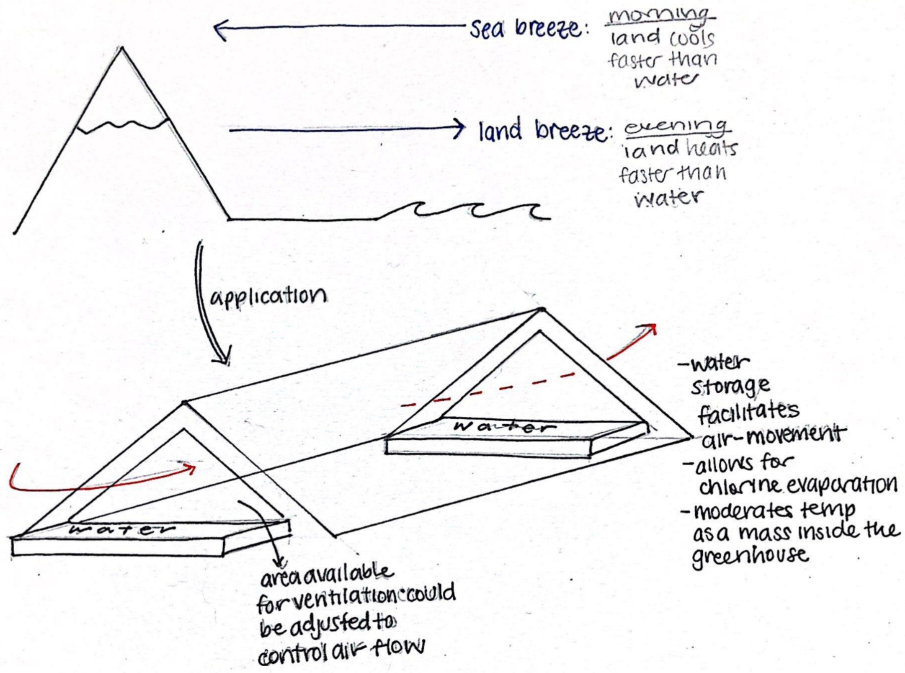 sea breeze: morning
land cools
faster than
water
land breeze: evening
land heats
faster than
water
application
water
water
-water
storage
facilitates
air-movement
-allows for
chlorine evaporation
-moderates temp
as a mass inside the
greenhouse
area available
for ventilation could
be adjusted to
control air flow